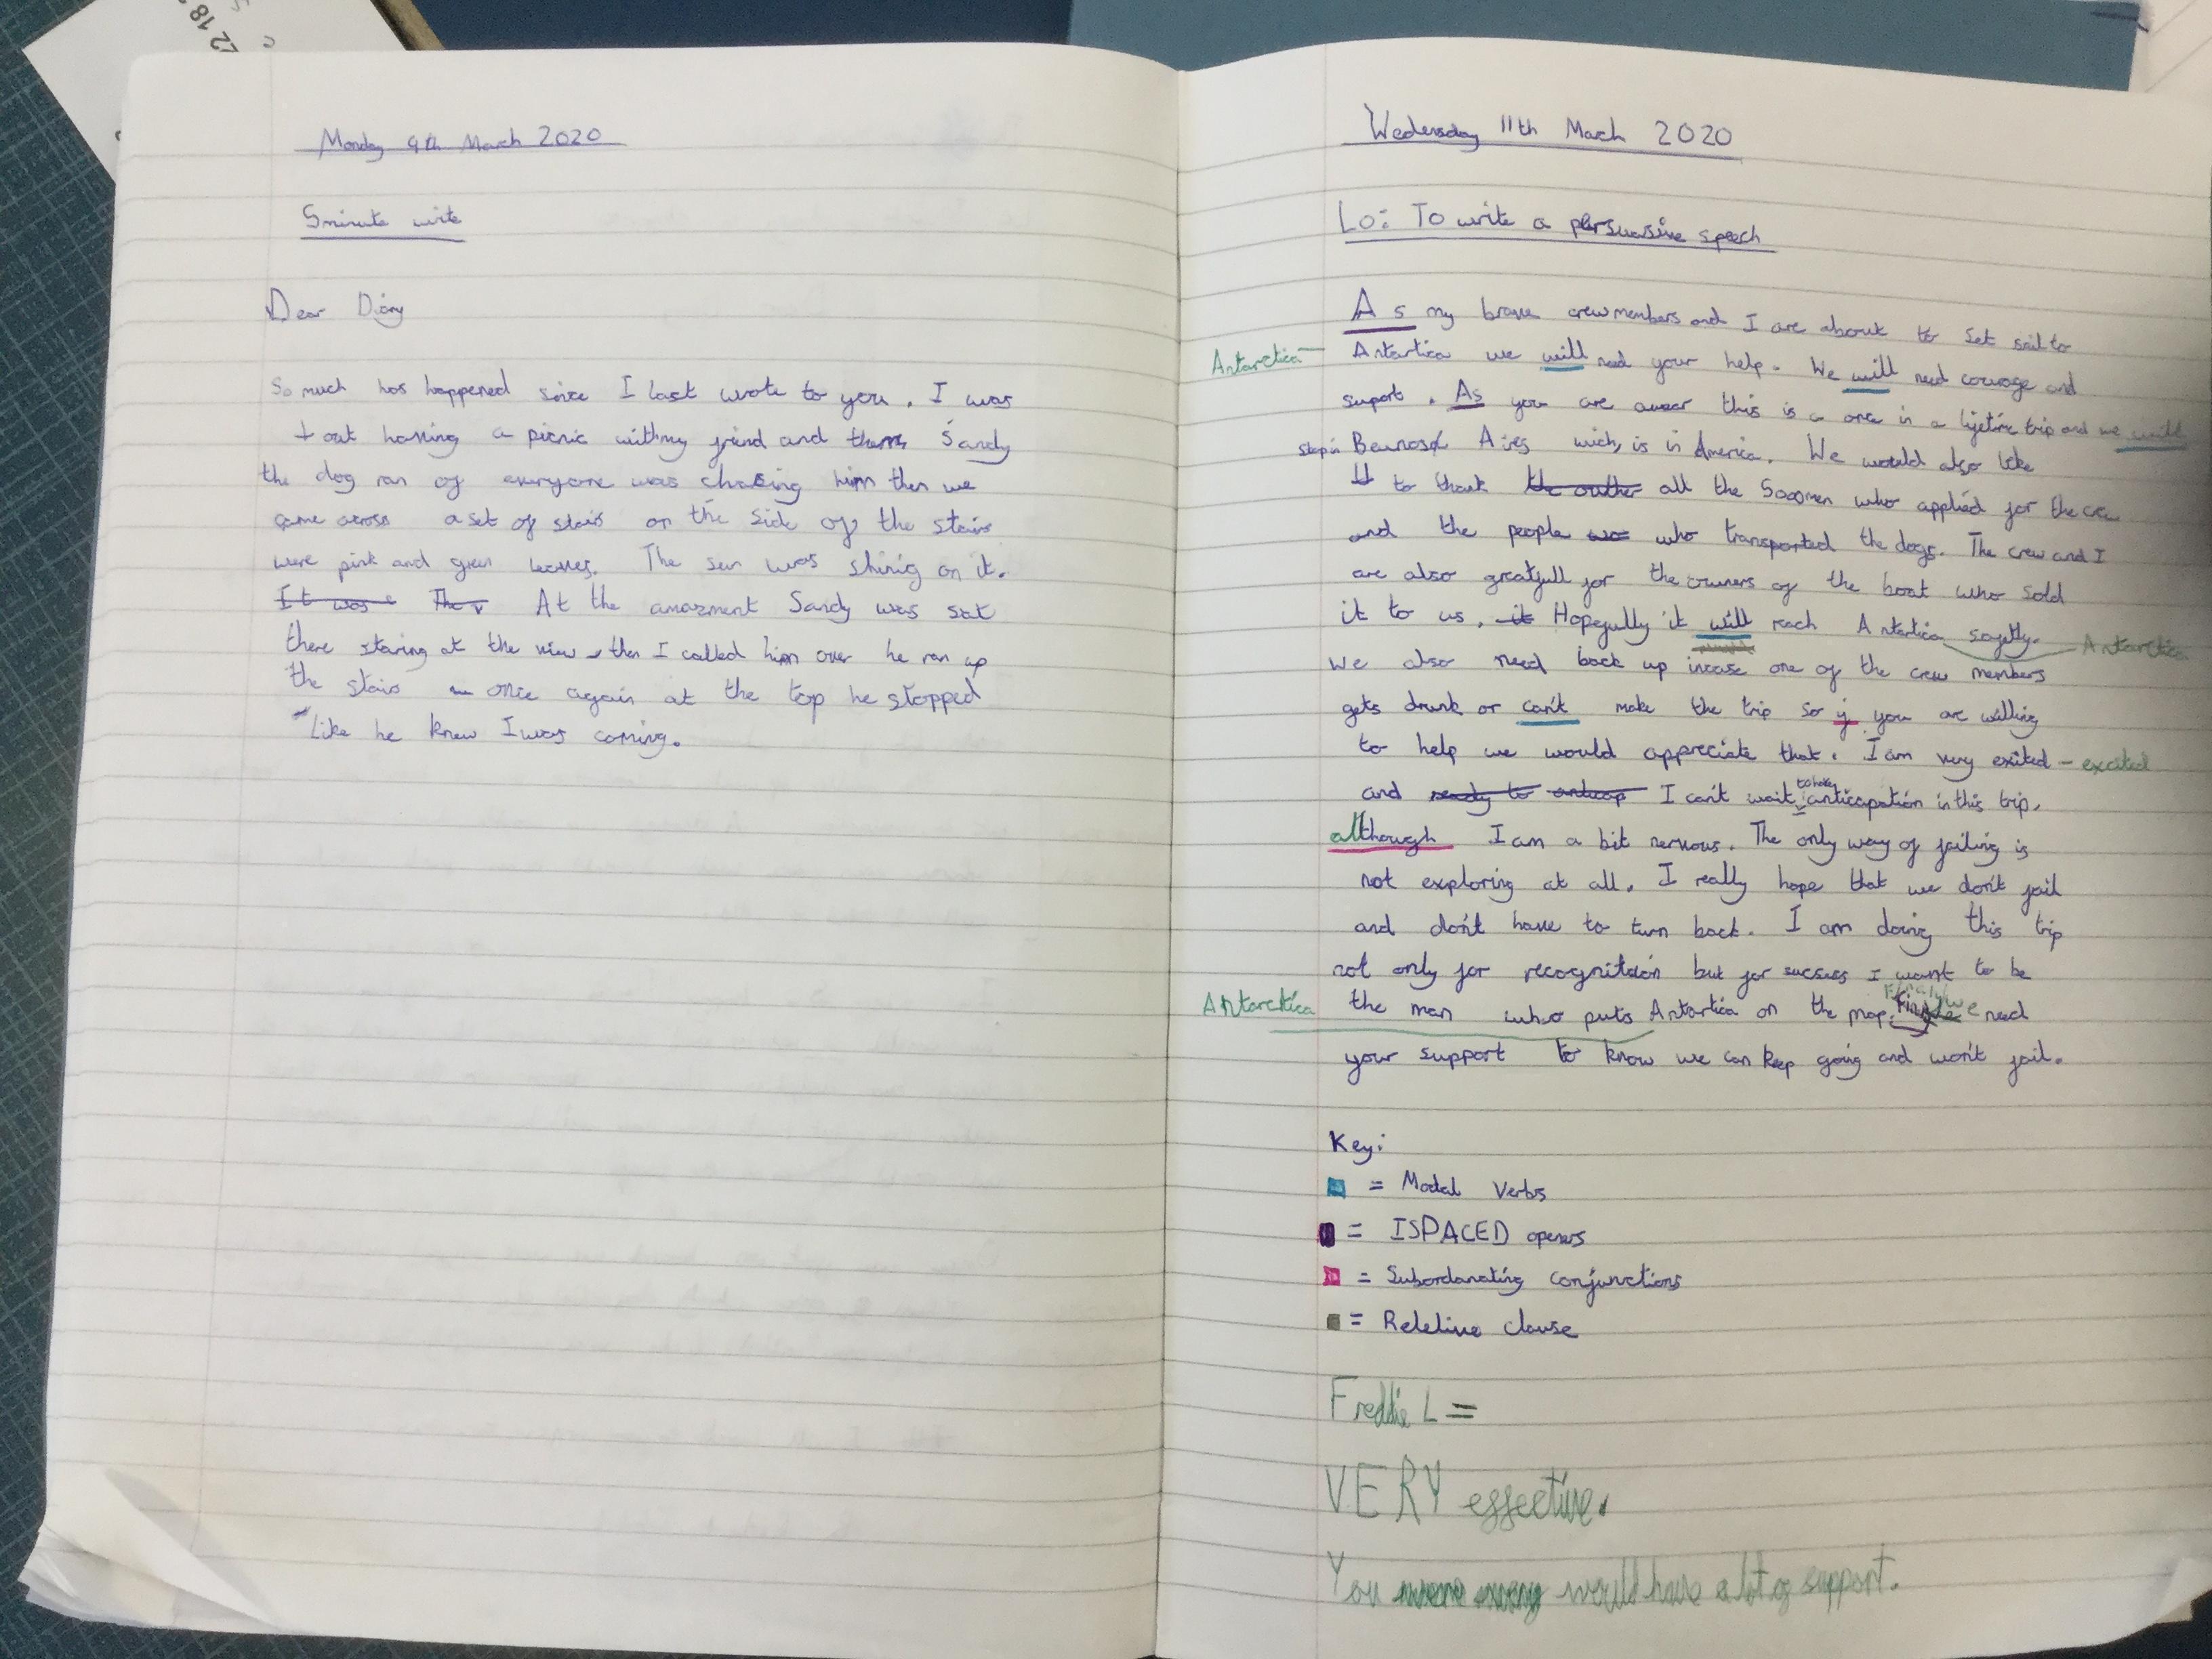 22 18
Monday 9th March 2020
5minute write
Dear Diary
So much has happened since I last wrote to you. I was
out having a picnic with my frind and then Sandy
the dog ran of everyone was chasing him then we
came across a set of stairs on the side of the stairs
were pink and green leaves. The sun was shinig on it.
It was The At the amazment Sandy was sat
there staring at the view then I called him over he ran up
the stairs once again at the top he stopped
like he knew I was coming.
Wednesday 11th March 2020
Lo: To write a persuasive speech
As my brave crew members and I are about to set sail to
Antarctica Antartica we will need your help. We will need courage and
suport. As you are awear this is a once in a lifetime trip and we will
stop in Beunos Aires wich, is in America. We would also like
to thank all the 5000men who applied for the crew
and the people who transported the dogs. The crew and I
are also greatfull for the owners of the boat who sold
it to us. it Hopefully it will reach Antartica safetly. Antarctica
We also need back up incase one of the crew members
gets drunk or can't make the trip so if you are willing
to help we would appreciate that. I am very exited - excited
and ready to anticap I can't wait to have anticapation in this trip.
although I am a bit nervous. The only way of failing is
not exploring at all. I really hope that we don't fail
and don't have to turn back. I am doing this trip
not only for recognition but for sucsess I want to be
Antarctica the man who puts Antartica on the map. Finaly we need
your support to know we can keep going and won't fail.
Key:
= Modal Verbs
= ISPACED openers
= Subordanating conjunctions
= Reletive clause
Freddie L =
VERY effective.
You would have a lot of support.